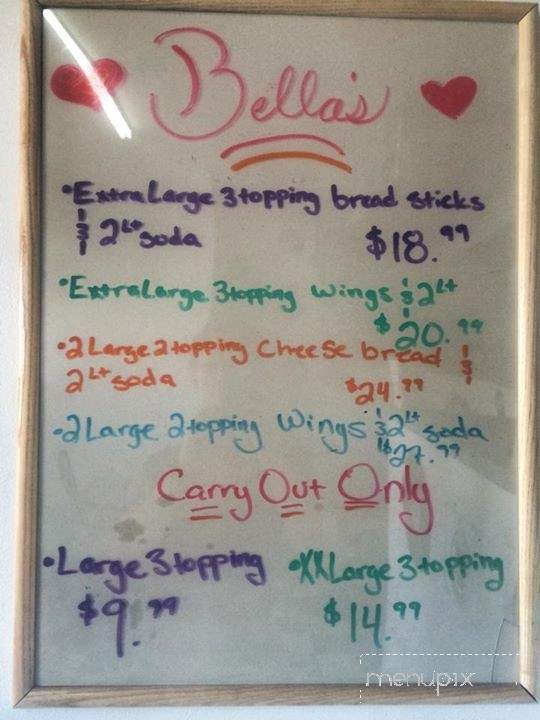 Bella's
•Extra Large 3 topping bread sticks
& 2Lt soda $18.99
•Extra Large 3 topping wings & 2Lt
$20.99
•2 Large 2 topping Cheese bread &
2Lt soda $24.99
•2 Large 2 topping Wings & 2Lt soda
$27.99
Carry Out Only
•Large 3 topping •XXLarge 3 topping
$9.99 $14.99
menupix